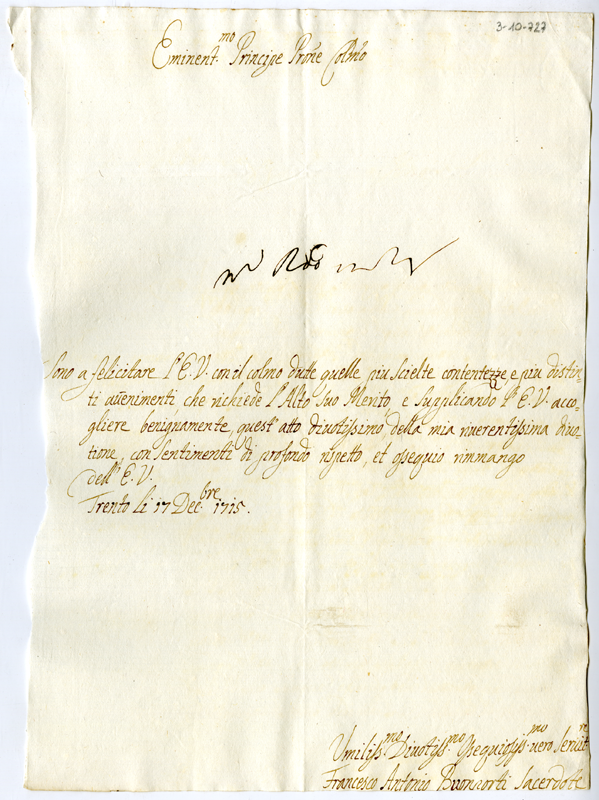 3-10-727
Eminent.mo Principe Prone Colmo
Sono a felicitare l'E.V. con il colmo dutte quelle piu scielte contentezze, e piu distin-
ti avenimenti che richiede l'Alto Suo Merito, e Supplicando l'E.V. acco-
gliere benignamente quest'atto divotissimo della mia riverentissima divo-
tione, con sentimenti di profondo rispetto, et ossequio rimmango
dell'E.V.
Trento li 17 Dec.bre 1715.
Umiliss.mo Divotiss.mo Ossequiosiss.mo vero Servit.re
Francesco Antonio Bonporti Sacerdote